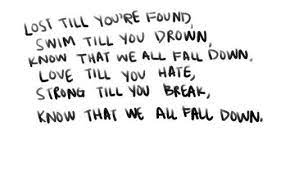 LOST TILL YOU'RE FOUND,
SWIM TILL YOU DROWN,
KNOW THAT WE ALL FALL DOWN.
LOVE TILL YOU HATE,
STRONG TILL YOU BREAK,
KNOW THAT WE ALL FALL DOWN.